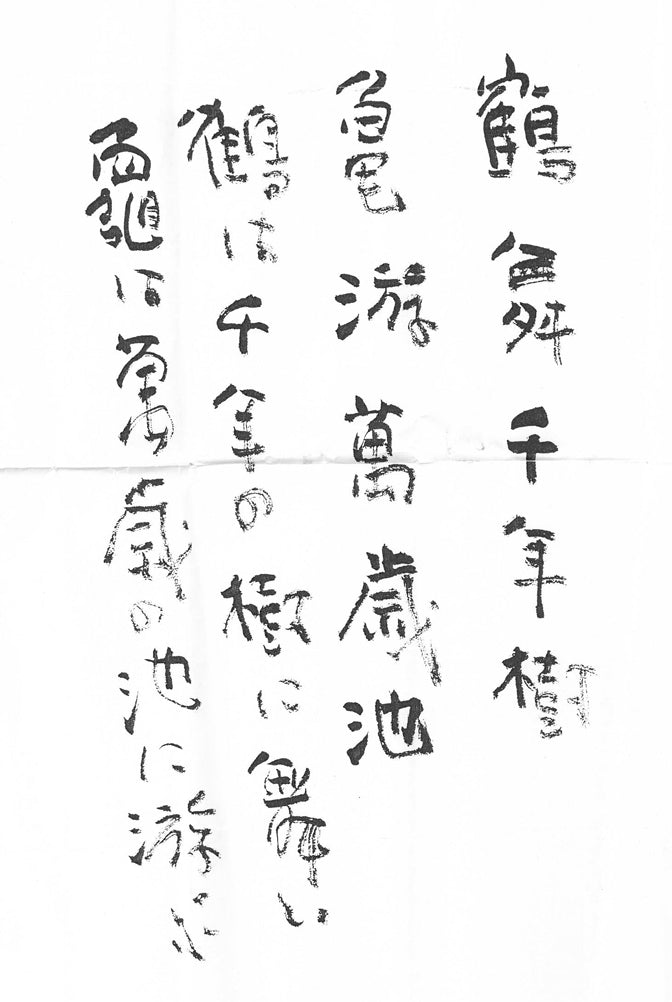 鶴舞千年樹
亀游萬歳池
鶴は千年の樹に舞い
龜は萬歳の池に游ぶ